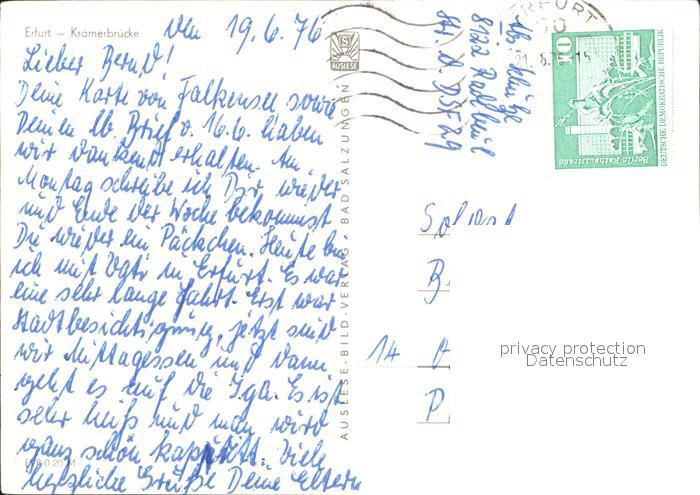 Erfurt – Krämerbrücke
den 19.6.76
Lieber Bernd!
Deine Karte von Falkensee sowie
Deinen lb. Brief v. 16.6. haben
wir dankend erhalten. Am
Montag schreibe ich Dir wieder
und Ende der Woche bekommst
Du wieder ein Päckchen. Heute bin
ich mit Vati in Erfurt. Es war
eine sehr lange Fahrt. Erst war
Stadtbesichtigung, jetzt sind
wir Mittagessen und dann
geht es auf die Iga. Es ist
sehr heiß und man wird
ganz schön kaputt. Viele
herzliche Grüße Deine Eltern
AUSLESE
AUSLESE-BILD-VERLAG · BAD SALZUNGEN
8122 Radebeul
ERFURT
10
Berlin Rathausstraße
DEUTSCHE DEMOKRATISCHE REPUBLIK
Soldat
B.
14
P
privacy protection
Datenschutz